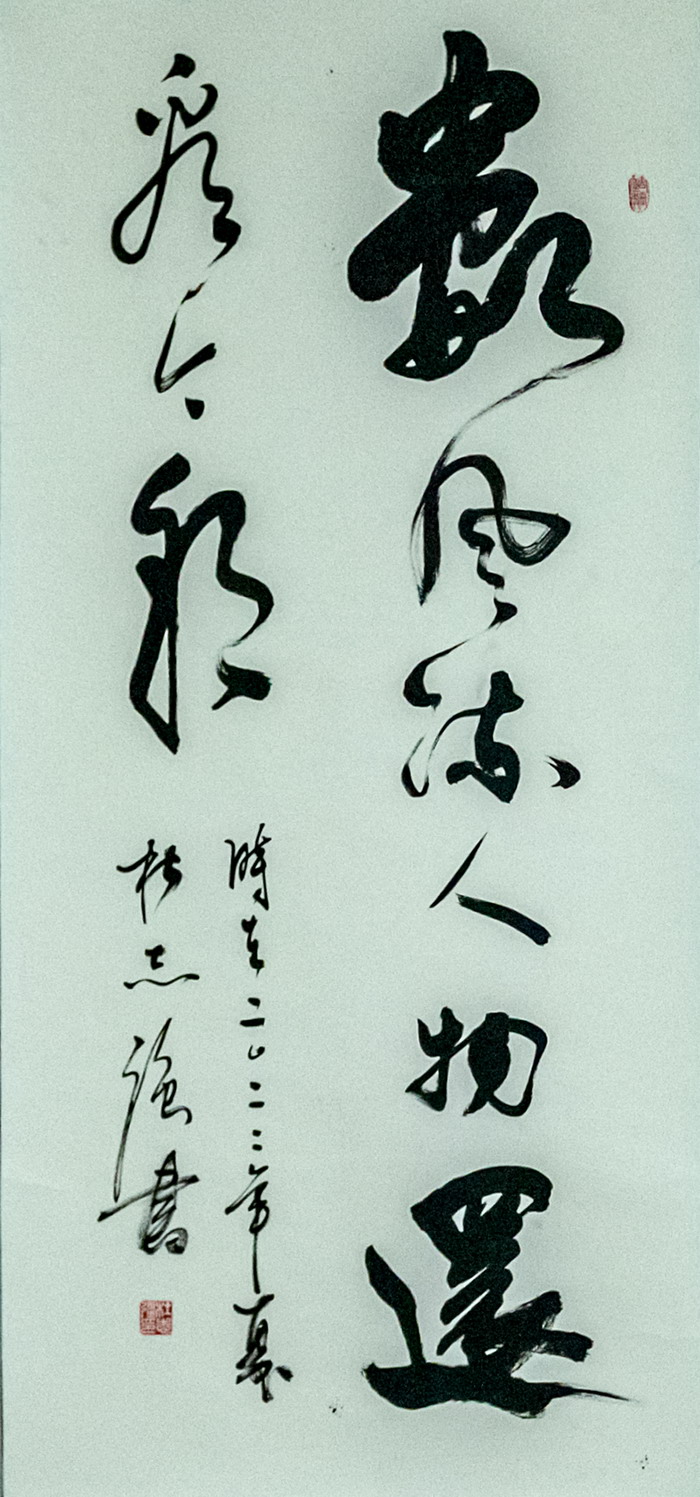 數風流人物還
看今朝
時在二〇二二年夏
杜志強書